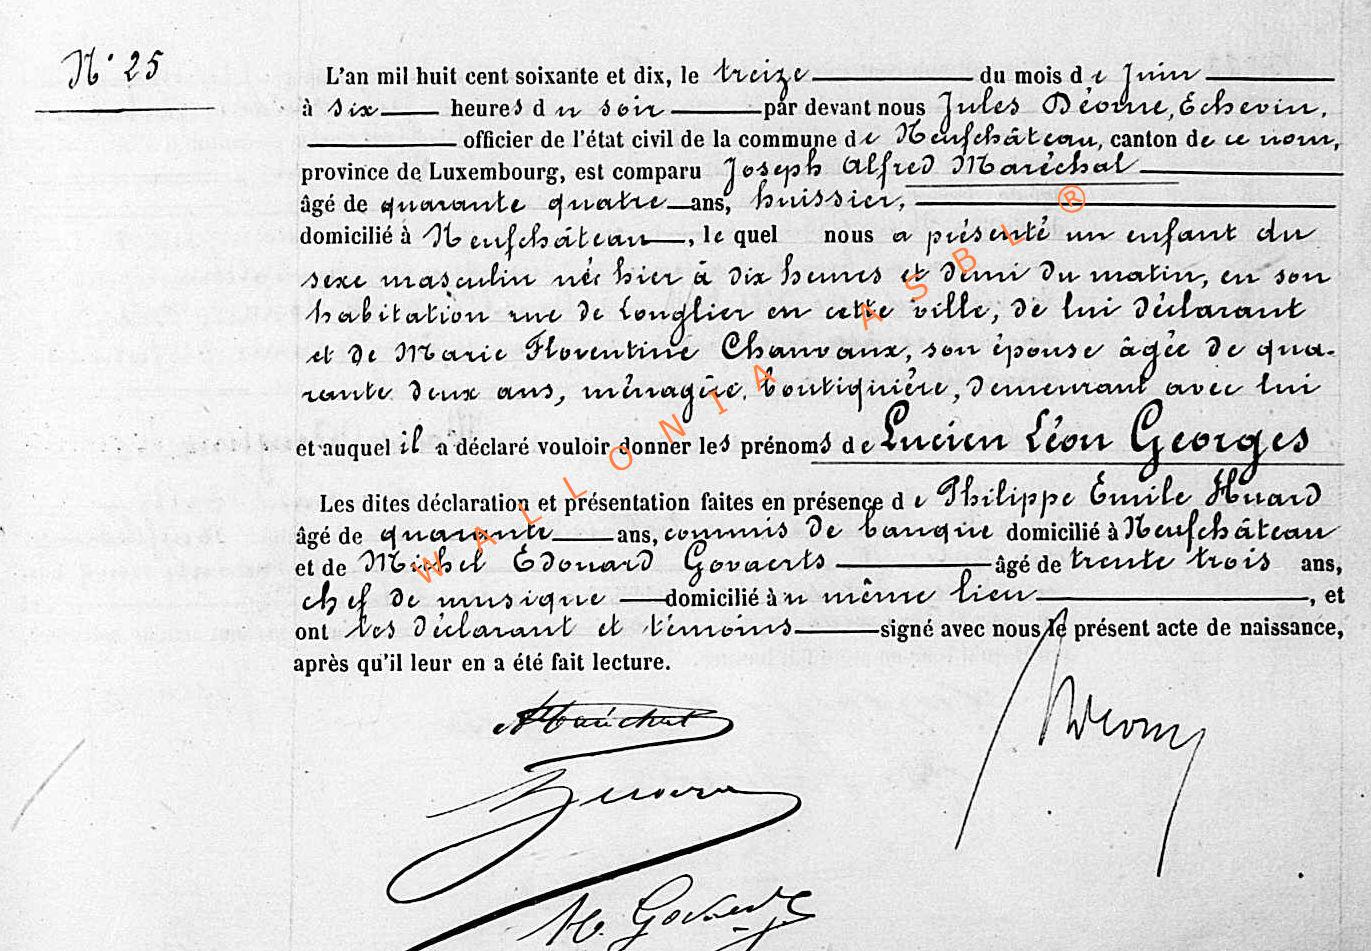 N° 25
L'an mil huit cent soixante et dix, le treize du mois de Juin
à six heures du soir par devant nous Jules Déome, Echevin,
officier de l'état civil de la commune de Neufchâteau, canton de ce nom,
province de Luxembourg, est comparu Joseph Alfred Maréchal
âgé de quarante quatre ans, huissier,
domicilié à Neufchâteau, le quel nous a présenté un enfant du
sexe masculin né hier à dix heures et demi du matin, en son
habitation rue de Longlier en cette ville, de lui déclarant
et de Marie Florentine Chauvaux, son épouse âgée de qua-
rante deux ans, ménagère, boutiquière, demeurant avec lui
et auquel il a déclaré vouloir donner les prénoms de Lucien Léon Georges
Les dites déclaration et présentation faites en présence de Philippe Emile Huard
âgé de quarante ans, commis de banque domicilié à Neufchâteau
et de Michel Edouard Govaerts âgé de trente trois ans,
chef de musique domicilié au même lieu, et
ont les déclarant et témoins signé avec nous le présent acte de naissance,
après qu'il leur en a été fait lecture.
Maréchal
M. Govaerts
WALLONIA ASBL ®